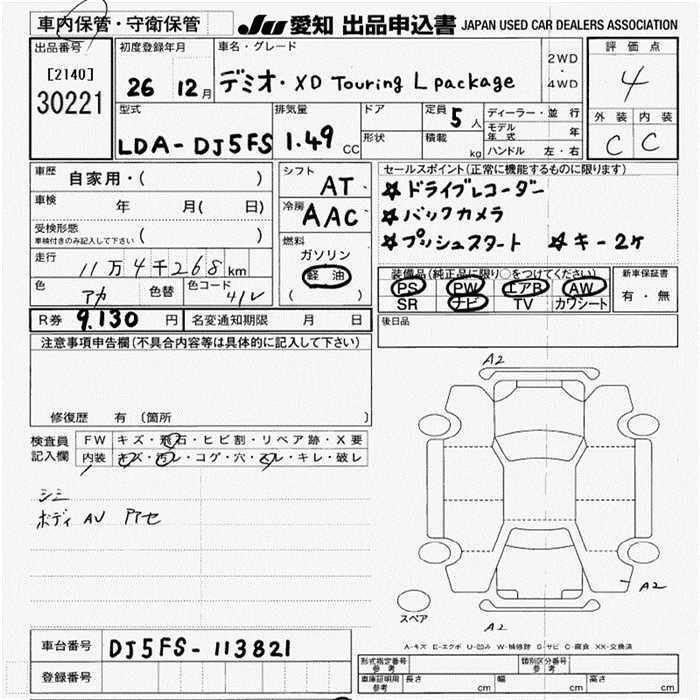 車内保管・守衛保管
JU 愛知 出品申込書 JAPAN USED CAR DEALERS ASSOCIATION
出品番号 初度登録年月 車名・グレード 評価点
[2140]
30221
26 12月 デミオ・XD Touring L package
2WD
・
4WD
4
型式 排気量 ドア 定員 5人 ディーラー・並行
モデル年式 年
外装 内装
LDA-DJ5FS 1.49 CC 形状 積載 kg ハンドル 左・右
C C
車歴 自家用・( )
シフト AT
セールスポイント(正常に機能するものに限ります)
車検 年 月( 日)
冷房 AAC
☆ドライブレコーダー
☆バックカメラ
☆プッシュスタート ☆キー2ケ
受検形態
車検付きのみ記入して下さい ( )
燃料
ガソリン
軽油
( )
走行 11万4千268km
色 アカ 色替 色コード 41V
装備品(純正品に限り○をつけてください) 新車保証書
PS PW エアB AW
SR ナビ TV カワシート
有・無
R券 9.130円 名変通知期限 月 日
後日品
注意事項申告欄(不具合内容等は具体的に記入して下さい)
修復歴 有 〔箇所 〕
検査員
記入欄
FW キズ・飛石・ヒビ割・リペア跡・X要
内装 キズ・汚レ・コゲ・穴・スレ・キレ・破レ
シミ
ボディ AV アセ
A2
A2
A2
スペア
A-キズ E-エクボ U-凹み W-補修跡 S-サビ C-腐食 XX-交換済
車台番号 DJ5FS-113821
登録番号
形式指定番号
参考
類別区分番号
参考
車庫証明用
参考
長さ cm 幅 cm 高さ cm